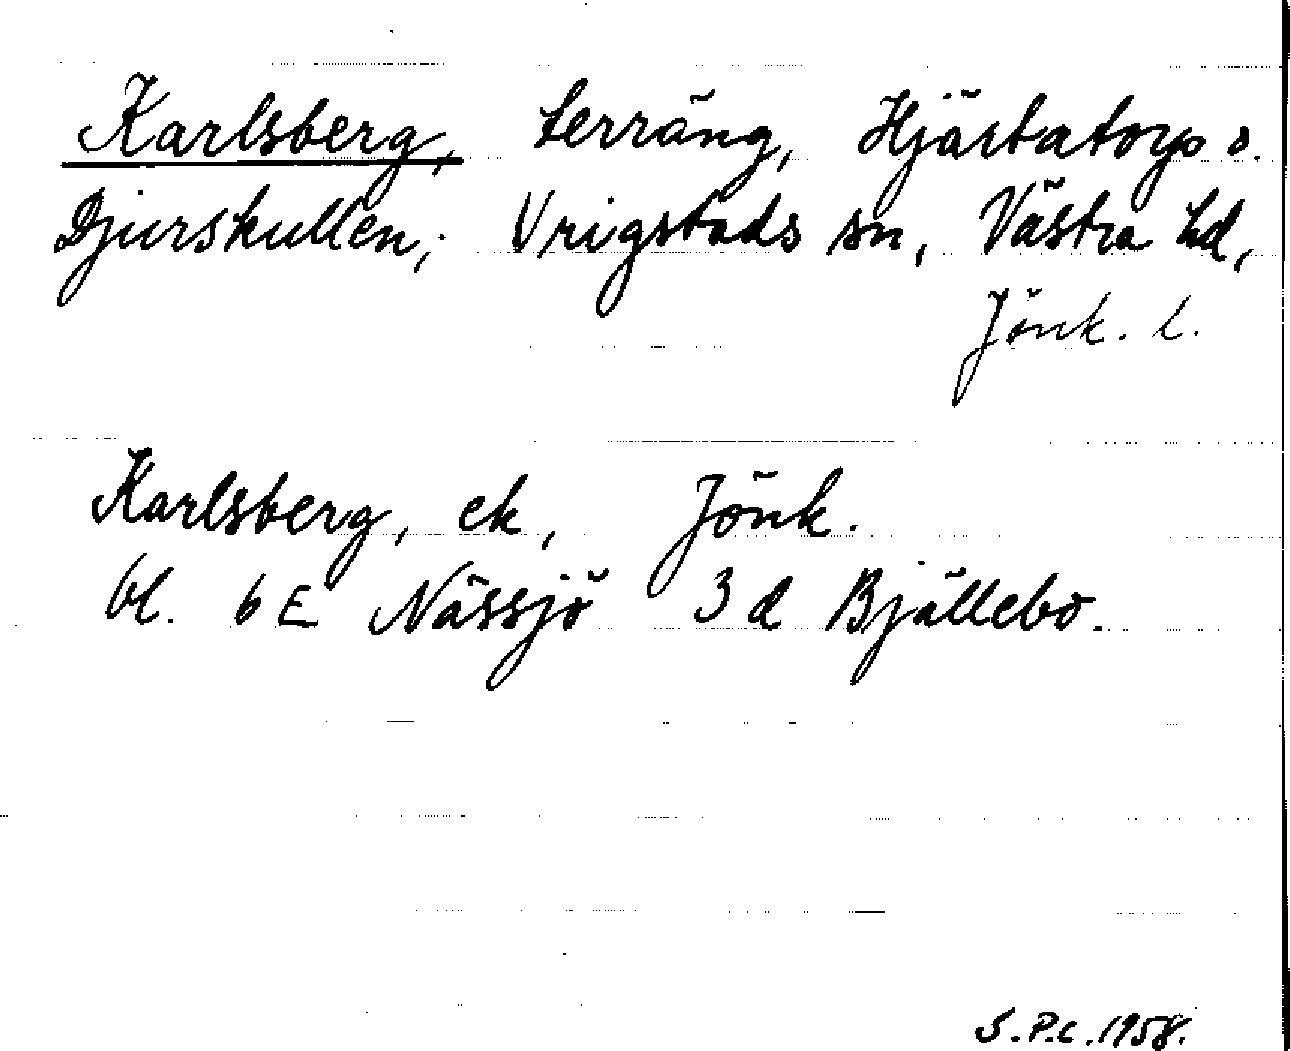 Karlsberg, terräng, Hjärtatorp o.
Djurskullen, Vrigstads sn, Västra hd,
Jönk. l.
Karlsberg, ek, Jönk.
bl. 6 E Nässjö 3 d Bjällebo.
S.P.C. 1958.